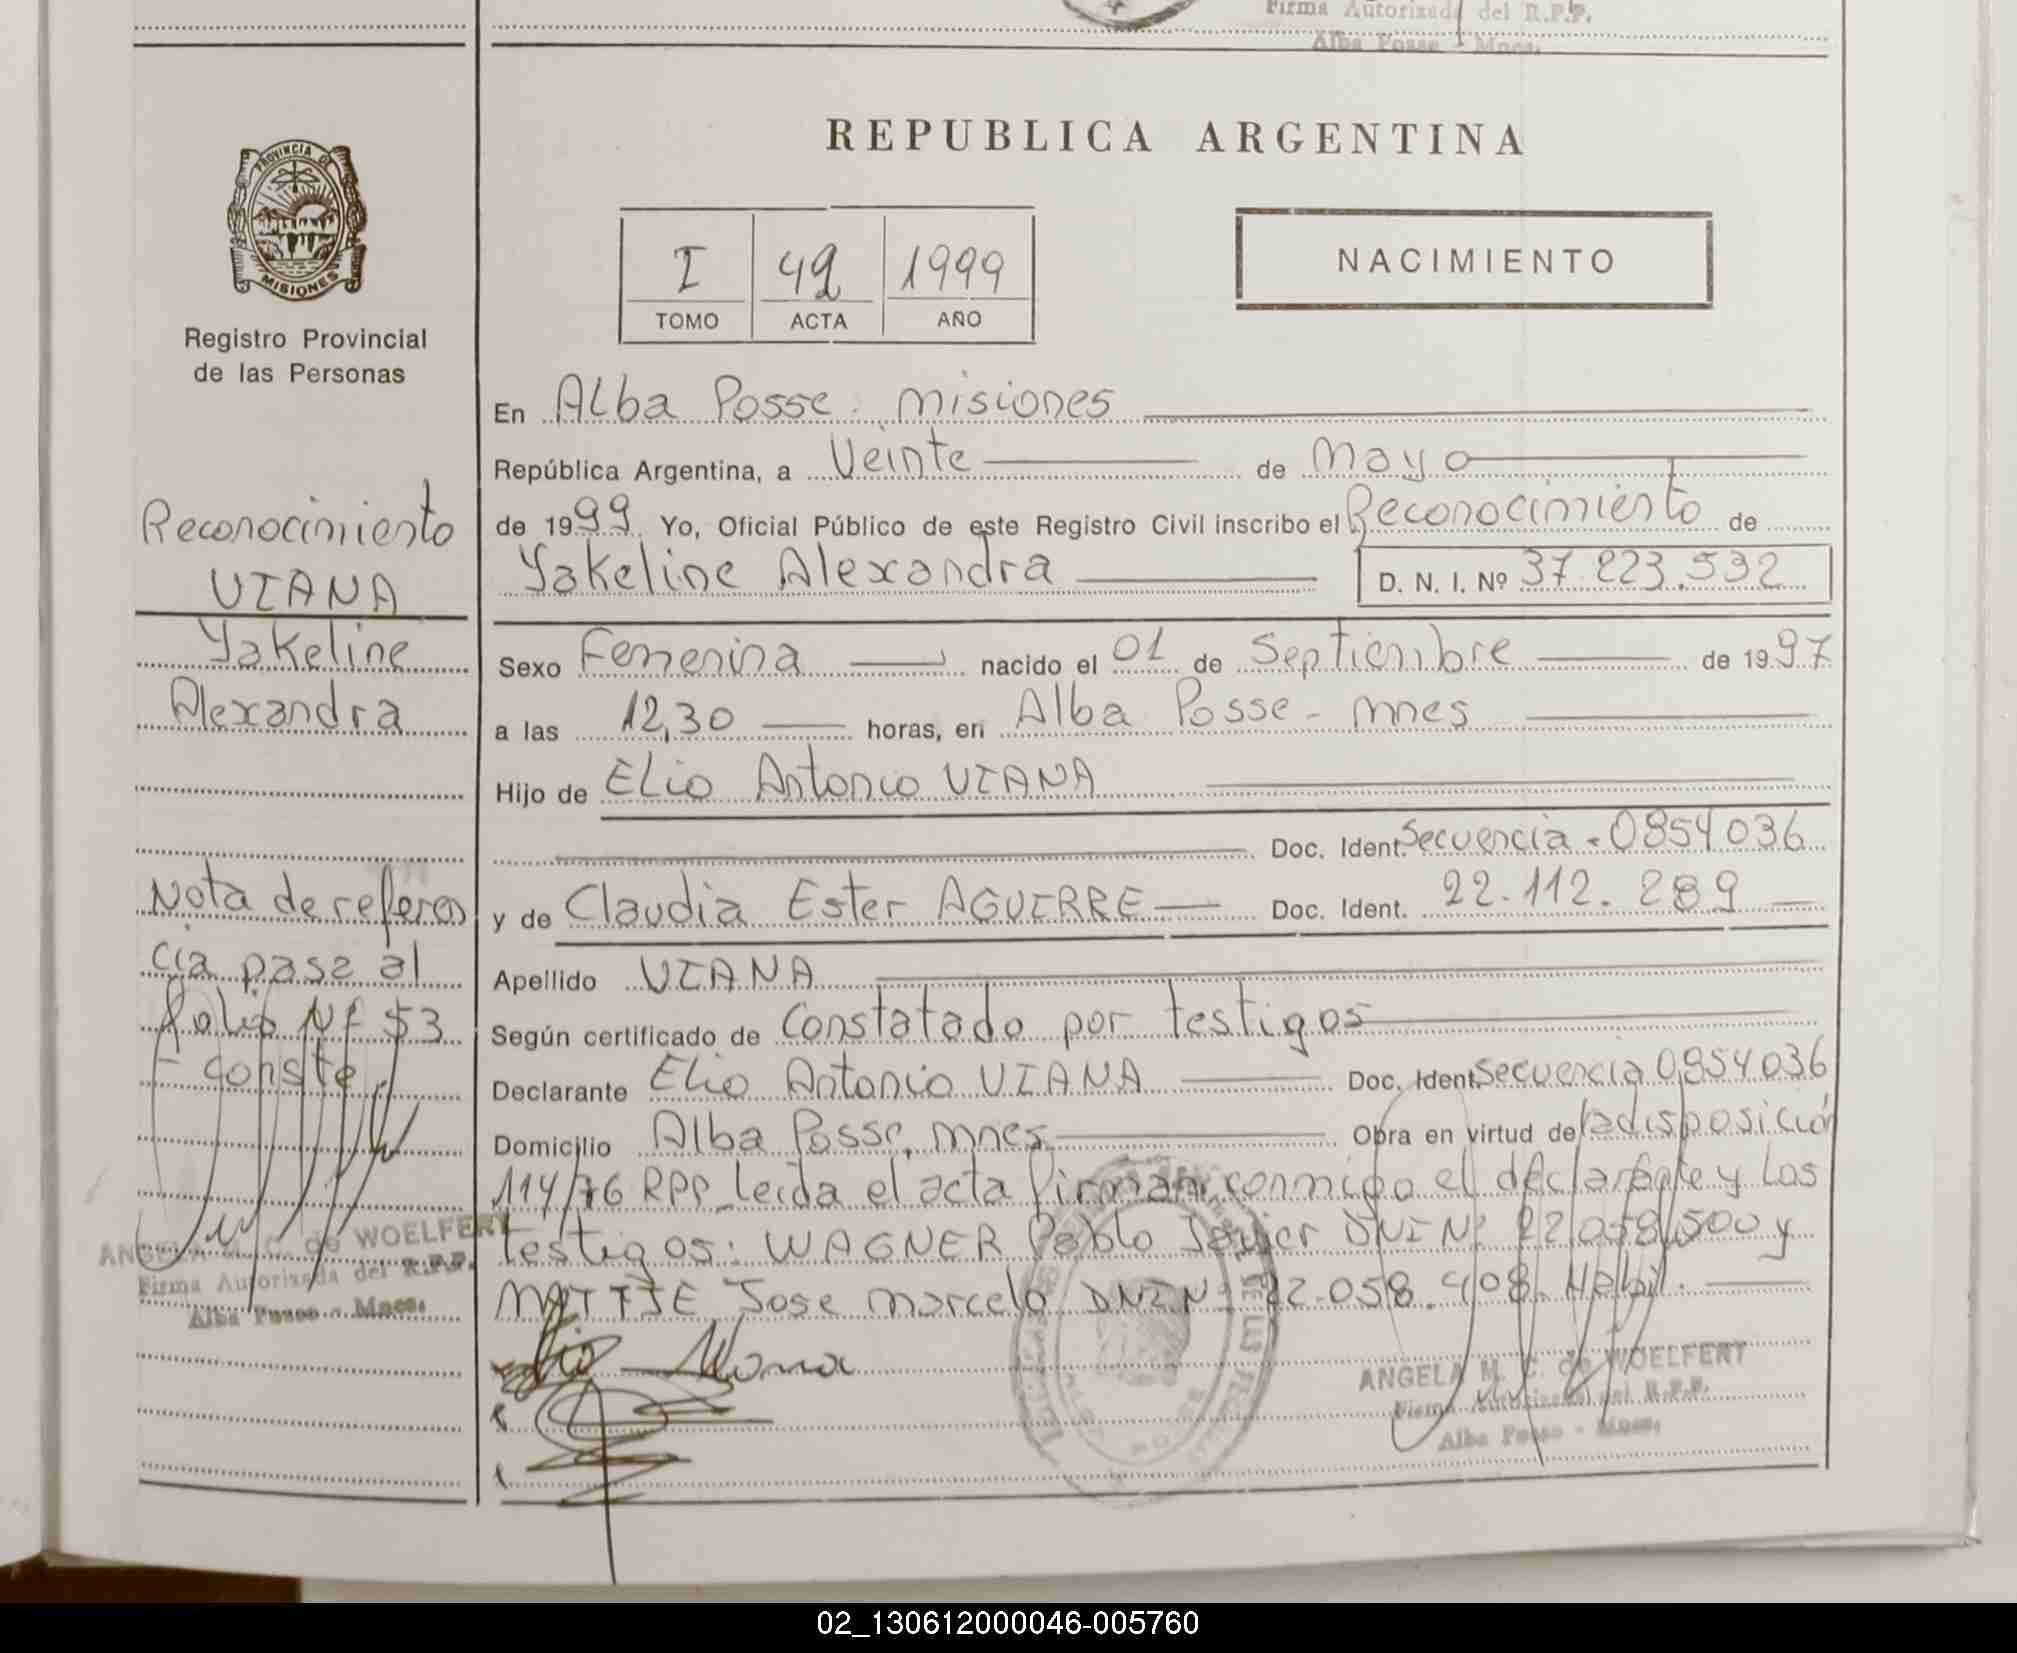 Firma Autorizada del R.P.P.
Alba Posse - Mnes.
PROVINCIA DE
MISIONES
Registro Provincial
de las Personas
Reconocimiento
VIANA
Yakeline
Alexandra
Nota de referen
cia pasa al
folio Nº 53
- conste.
ANGELA M. C. de WOELFERT
Firma Autorizada del R.P.P.
Alba Posse - Mnes.
REPUBLICA ARGENTINA
I 42 1999
TOMO ACTA AÑO
NACIMIENTO
En Alba Posse. misiones
República Argentina, a Veinte de Mayo
de 1999 Yo, Oficial Público de este Registro Civil inscribo el Reconocimiento de
Yakeline Alexandra D. N. I. Nº 37.223.532
Sexo Femenina nacido el 01 de Septiembre de 1997
a las 12,30 horas, en Alba Posse - mnes
Hijo de Elio Antonio VIANA
Doc. Ident. Secuencia - 0854036
y de Claudia Ester AGUIRRE Doc. Ident. 22.112.289
Apellido VIANA
Según certificado de Constatado por testigos
Declarante Elio Antonio VIANA Doc. Ident. Secuencia 0854036
Domicilio Alba Posse, mnes Obra en virtud de la disposición
114/76 RPP leida el acta firman conmigo el declarante y los
testigos: WAGNER Pablo Javier DNI Nº 22.058.500 y
José Marcelo DNI Nº 22.058.408.
ANGELA M. C. de WOELFERT
Firma Autorizada del R.P.P.
Alba Posse - Mnes.
02_130612000046-005760